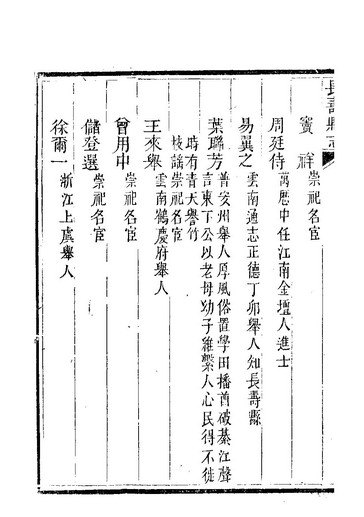 長壽縣志
竇祥 崇祀名宦
周廷侍 萬厯中任江南金壇人進士
易翼之 雲南通志正德丁卯舉人知長壽縣
葉聯芳 普安州舉人厚風俗置學田播酋破綦江聲
言東下公以老母幼子維繫人心民得不徙
時有青天譽竹
枝謡崇祀名宦
王來舉 雲南鶴慶府舉人
曾用中 崇祀名宦
儲登選 崇祀名宦
徐爾一 浙江上虞舉人